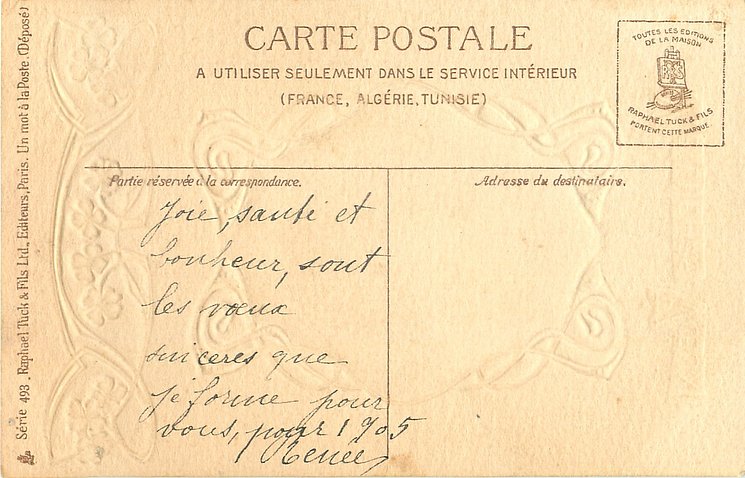 CARTE POSTALE
A UTILISER SEULEMENT DANS LE SERVICE INTÉRIEUR
(FRANCE, ALGÉRIE, TUNISIE)
TOUTES LES EDITIONS
DE LA MAISON
RAPHAEL TUCK & FILS
PORTENT CETTE MARQUE.
Série 493. Raphael Tuck & Fils Ltd., Editeurs, Paris. Un mot à la Poste. (Déposé)
Partie réservée à la correspondance.
Joie, santé et
bonheur, sont
les vœux
sinceres que
je forme pour
vous, pour 1905
Renée
Adresse du destinataire.